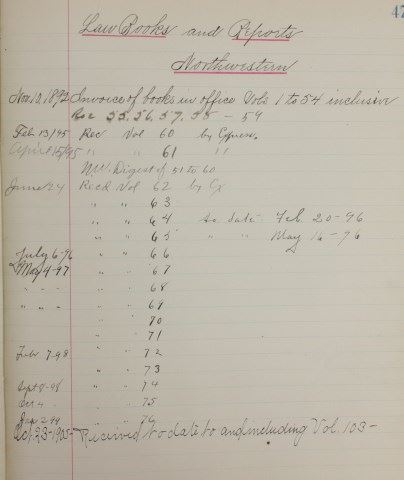 47
Law Books and Reports
Northwestern
Nov. 10, 1892 Invoice of books in office Vols 1 to 54 inclusive
Rec 55, 56, 57, 58 - 59
Feb 13/95 Rec Vol 60 by Express.
April 15/95 " " 61 "
N.W. Digest of 51 to 60
June 24 Recd Vol 62 by Ex
" " 63
" " 64 to date Feb. 20-96
" " 65 " " May 16-96
July 6-96 " " 66
May 4-97 " " 67
" " " " 68
" " " " 69
" 70
" 71
Feb 7-98 " " 72
" " 73
Sept 8-98 " " 74
Oct 4 " " 75
Jan 2 99 " " 76
Oct. 23-1905- Received to date to and including Vol. 103-